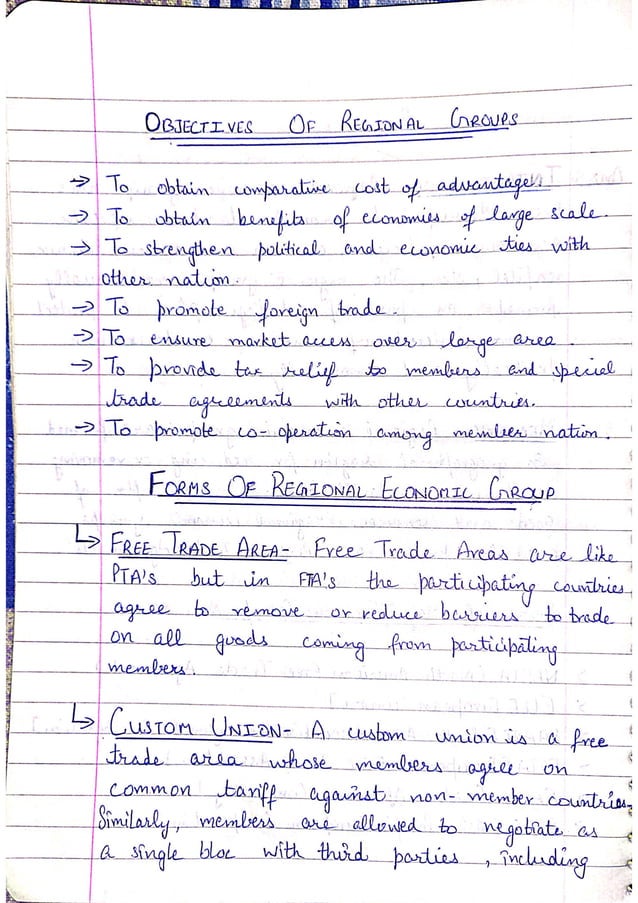 OBJECTIVES OF REGIONAL GROUPS
→ To obtain comparative cost of advantage.
→ To obtain benefits of economies of large scale.
→ To strengthen political and economic ties with
other nation.
→ To promote foreign trade.
→ To ensure market access over large area.
→ To provide tax relief to members and special
trade agreements with other countries.
→ To promote co-operation among member nation.
FORMS OF REGIONAL ECONOMIC GROUP
↳ FREE TRADE AREA- Free Trade Areas are like
PTA's but in FTA's the participating countries
agree to remove or reduce barriers to trade
on all goods coming from participating
members.
↳ CUSTOM UNION- A custom union is a free
trade area whose members agree on
common tariff against non-member countries.
Similarly, members are allowed to negotiate as
a single bloc with third parties, including